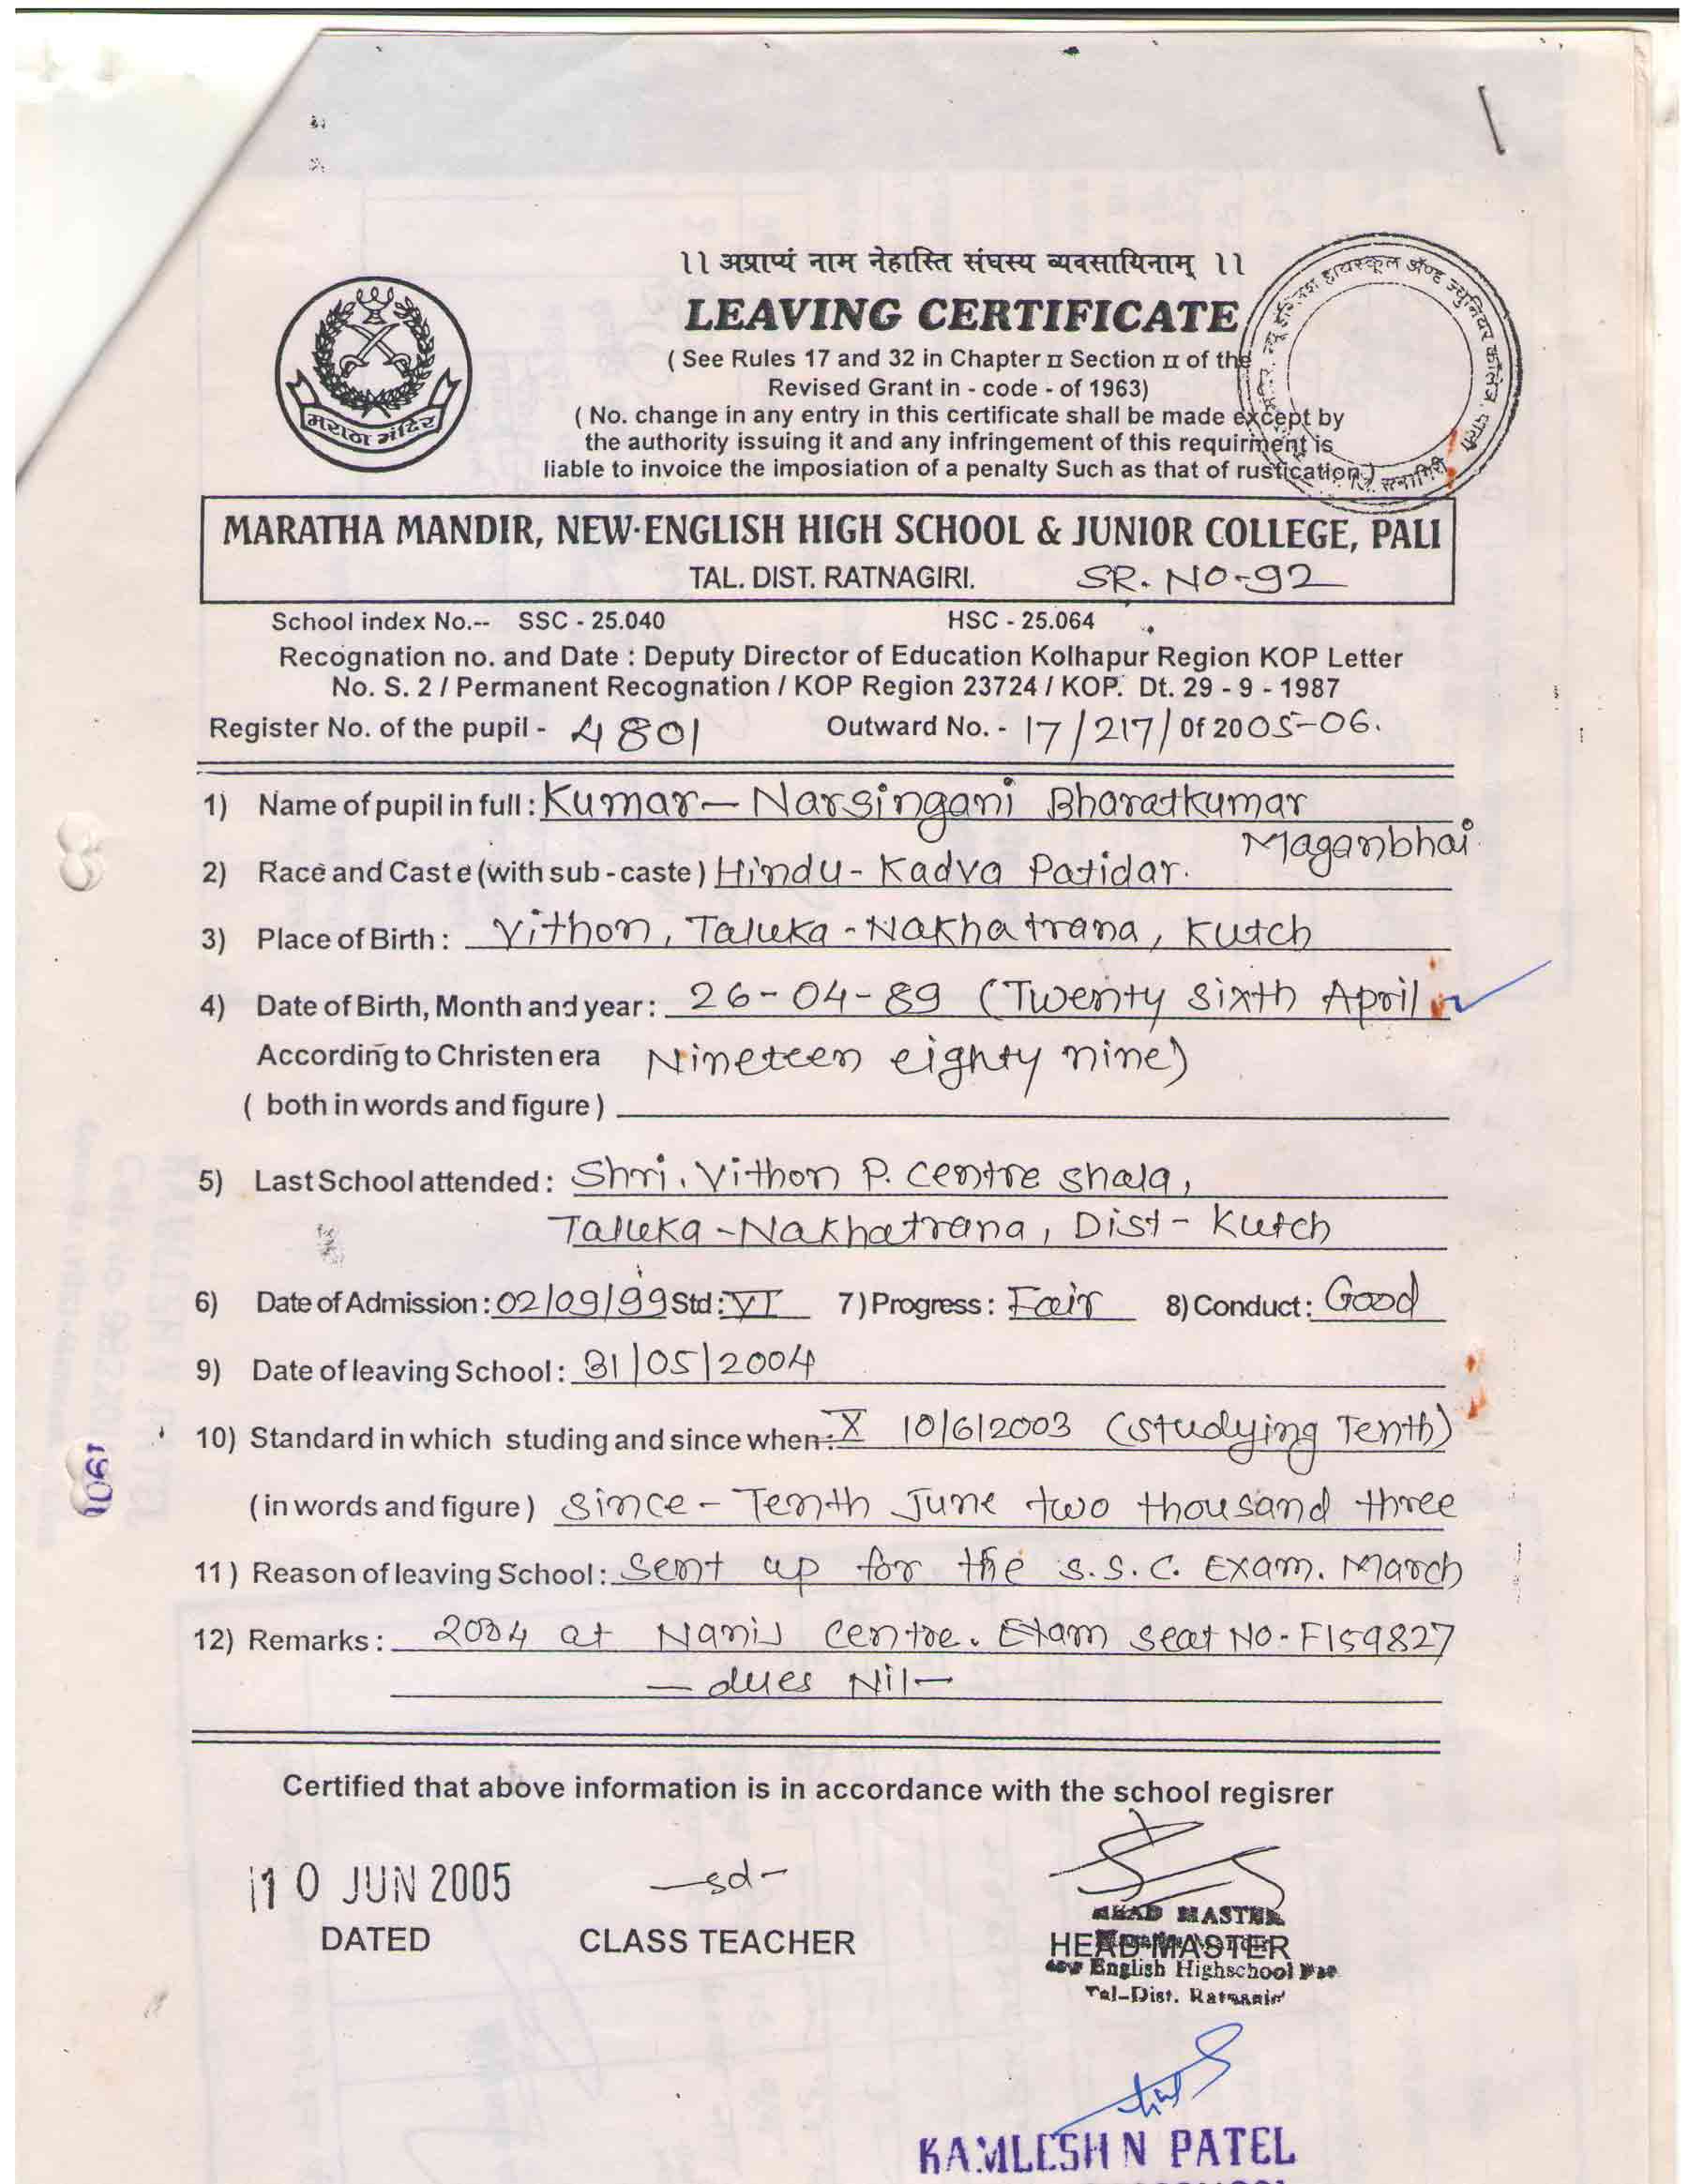 ।। अप्राप्यं नाम नेहास्ति संघस्य व्यवसायिनाम् ।।
LEAVING CERTIFICATE
( See Rules 17 and 32 in Chapter II Section II of the
Revised Grant in - code - of 1963)
( No. change in any entry in this certificate shall be made except by
the authority issuing it and any infringement of this requirment is
liable to invoice the imposiation of a penalty Such as that of rustication.)
मराठा मंदिर
न्यू इंग्लिश हायस्कूल अँण्ड ज्युनियर कॉलेज, पाली
जि. रत्नागिरी
MARATHA MANDIR, NEW-ENGLISH HIGH SCHOOL & JUNIOR COLLEGE, PALI
TAL. DIST. RATNAGIRI. SR. NO-92
School index No.-- SSC - 25.040 HSC - 25.064
Recognation no. and Date : Deputy Director of Education Kolhapur Region KOP Letter
No. S. 2 / Permanent Recognation / KOP Region 23724 / KOP. Dt. 29 - 9 - 1987
Register No. of the pupil - 4801 Outward No. - 17/217/ Of 2005-06.
1) Name of pupil in full : Kumar- Narsingani Bharatkumar
Maganbhai
2) Race and Caste (with sub - caste ) Hindu - Kadva Patidar.
3) Place of Birth : Vithon, Taluka - Nakhatrana, Kutch
4) Date of Birth, Month and year : 26-04-89 (Twenty sixth April
According to Christen era Nineteen eighty nine)
( both in words and figure )
5) Last School attended : Shri. Vithon P. Centre shala,
Taluka - Nakhatrana, Dist - Kutch
6) Date of Admission : 02/09/99 Std : VI 7) Progress : Fair 8) Conduct : Good
9) Date of leaving School : 31/05/2004
10) Standard in which studing and since when : X 10/6/2003 (studying Tenth)
(in words and figure ) since - Tenth June two thousand three
11) Reason of leaving School : Sent up for the S.S.C. Exam. March
12) Remarks : 2004 at Nanij Centre. Exam seat No - F159827
- dues Nil -
Certified that above information is in accordance with the school regisrer
10 JUN 2005 -sd-
DATED CLASS TEACHER HEAD MASTER
HEAD MASTER
English Highschool
Tal-Dist.
1901
KAMLESH N PATEL